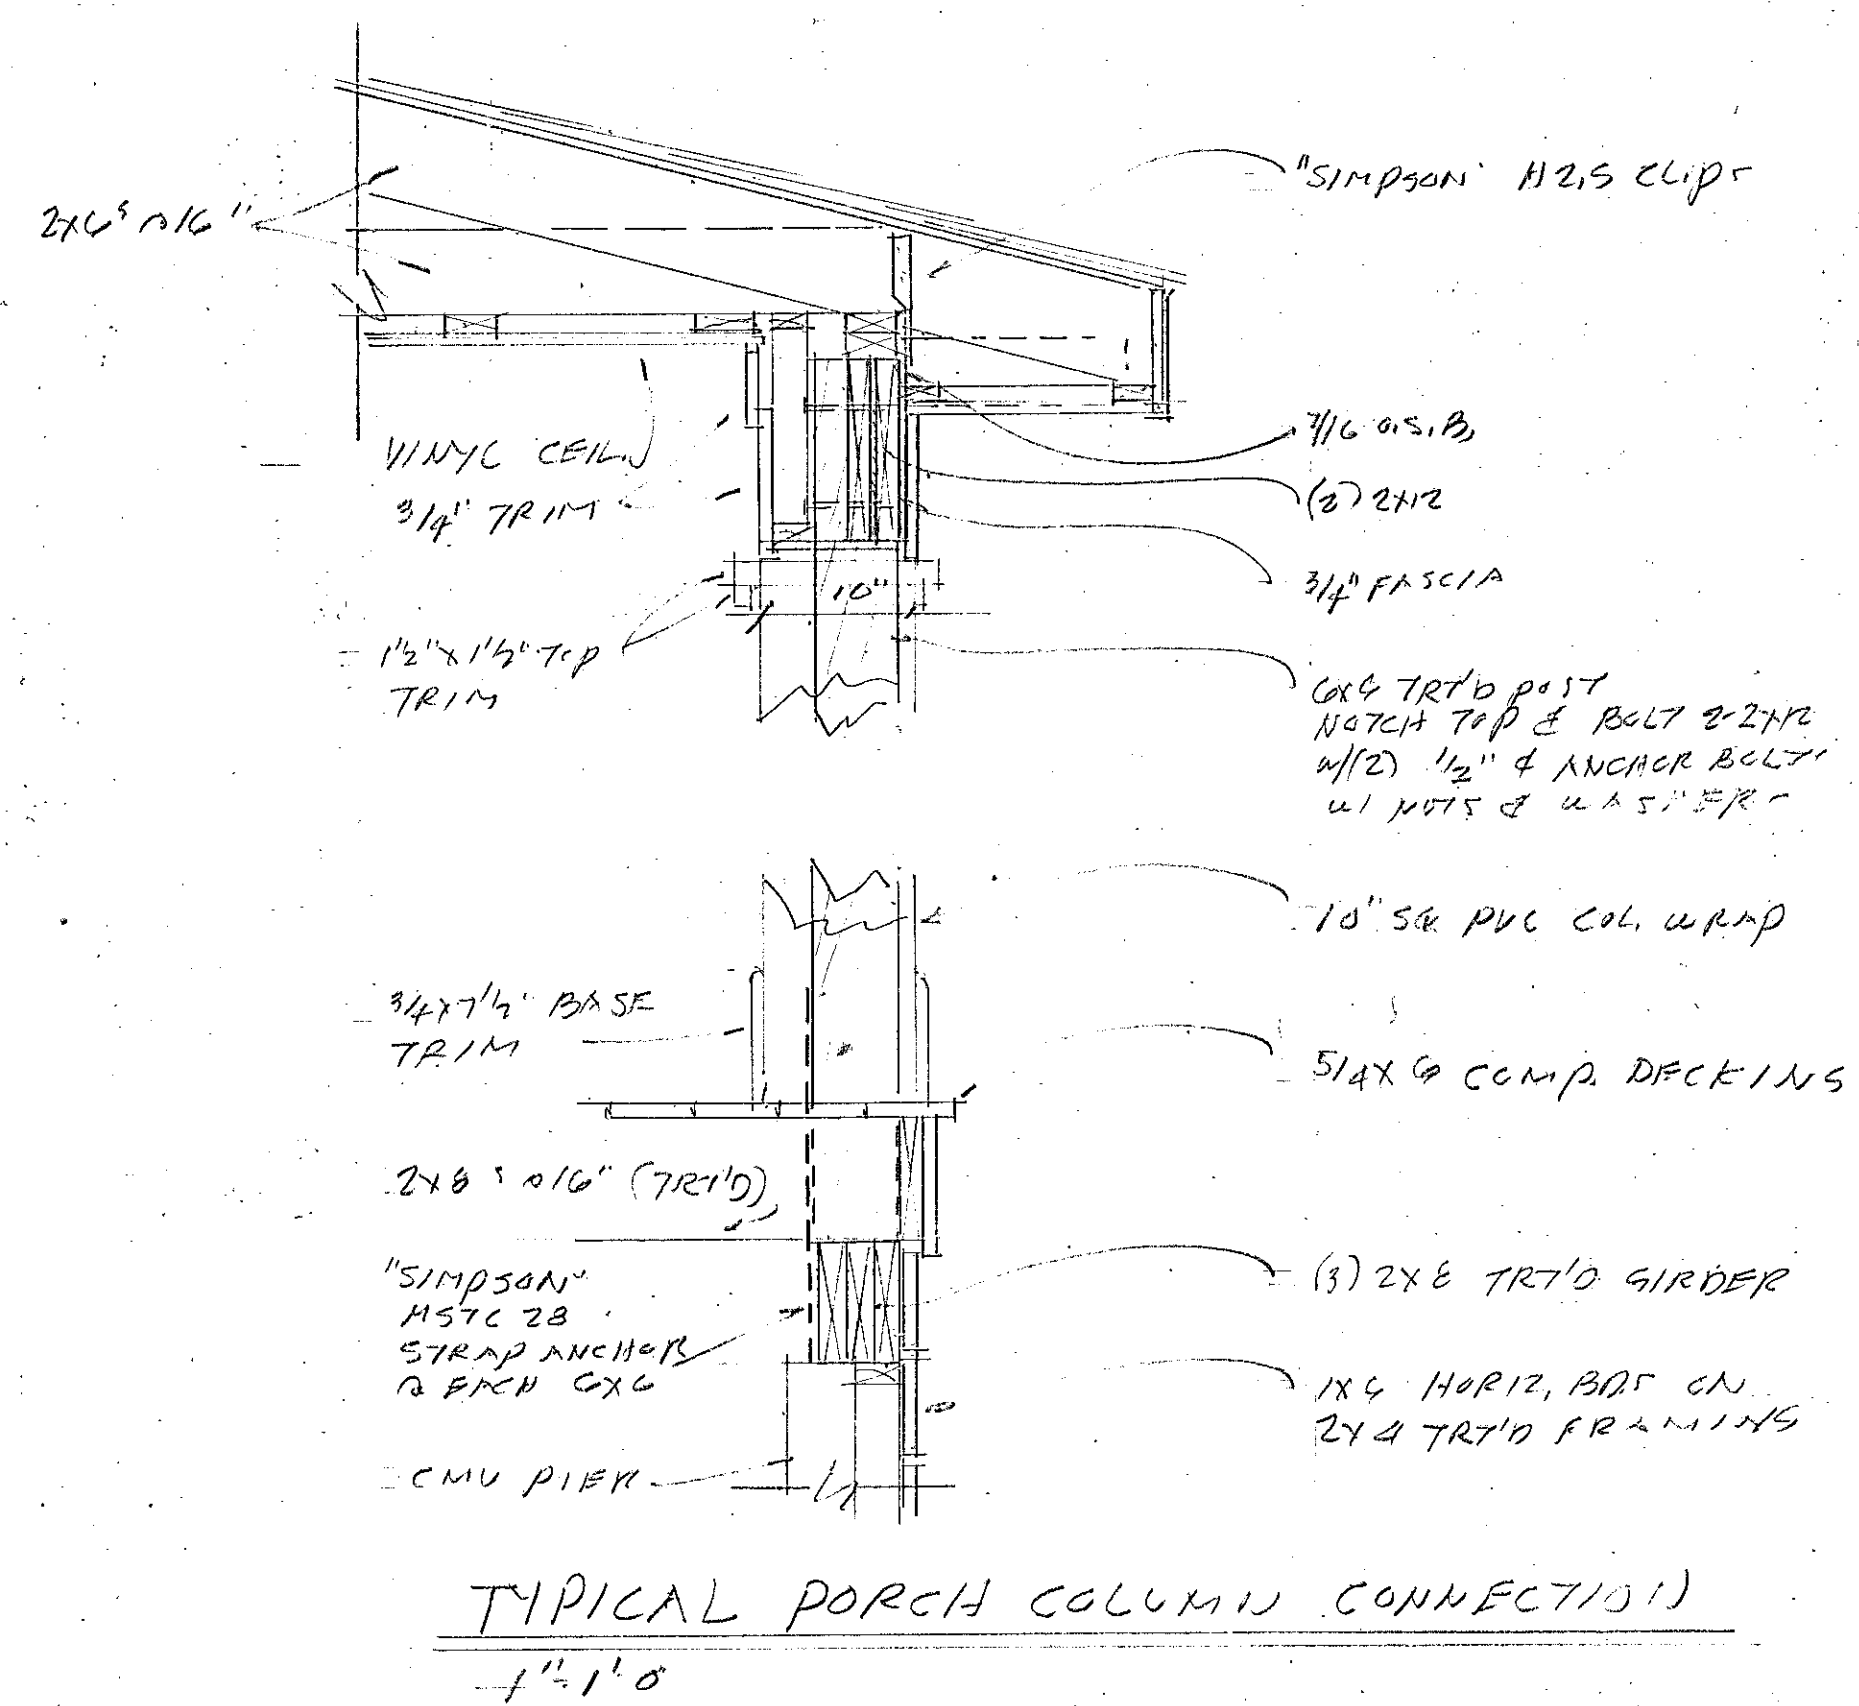 "SIMPSON" H2.5 CLIPS
2X6S @16"
VINYL CEIL.
3/4" TRIM
7/16 O.S.B.
(2) 2X12
3/4" FASCIA
10"
1½"X1½" TOP
TRIM
6X6 TRT'D POST
NOTCH TOP & BOLT 2-2X12
W/(2) 1/2" ¢ ANCHOR BOLTS
W/ NUTS & WASHERS
10" SQ PVC COL. WRAP
3/4X7½" BASE
TRIM
5/4X6 COMP. DECKING
2X8S @16" (TRT'D)
"SIMPSON"
MSTC 28
STRAP ANCHOR
@ EACH 6X6
(3) 2X8 TRT'D GIRDER
1X6 HORIZ. BDS ON
2X4 TRT'D FRAMING
CMU PIER
TYPICAL PORCH COLUMN CONNECTION
1"=1'0